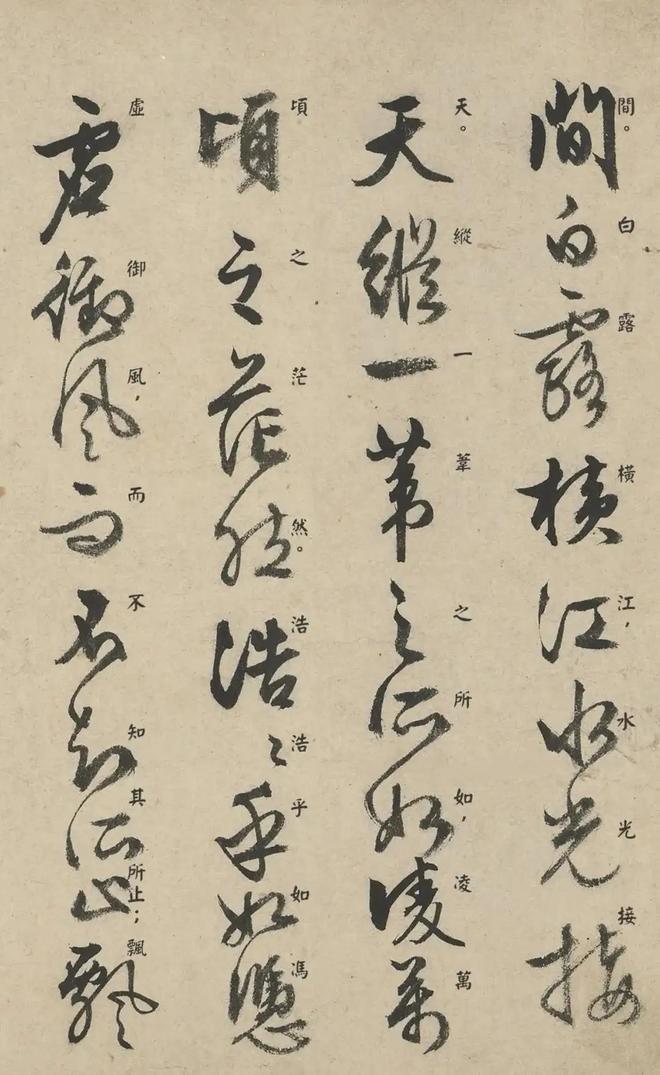 間。白露橫江，水光接
間白露橫江水光接
天。縱一葦之所如，凌萬
天縱一葦之所如凌萬
頃之茫然。浩浩乎如馮
頃之茫然浩〻乎如憑
虛御風，而不知其所止；飄
虛御風而不知所止飄